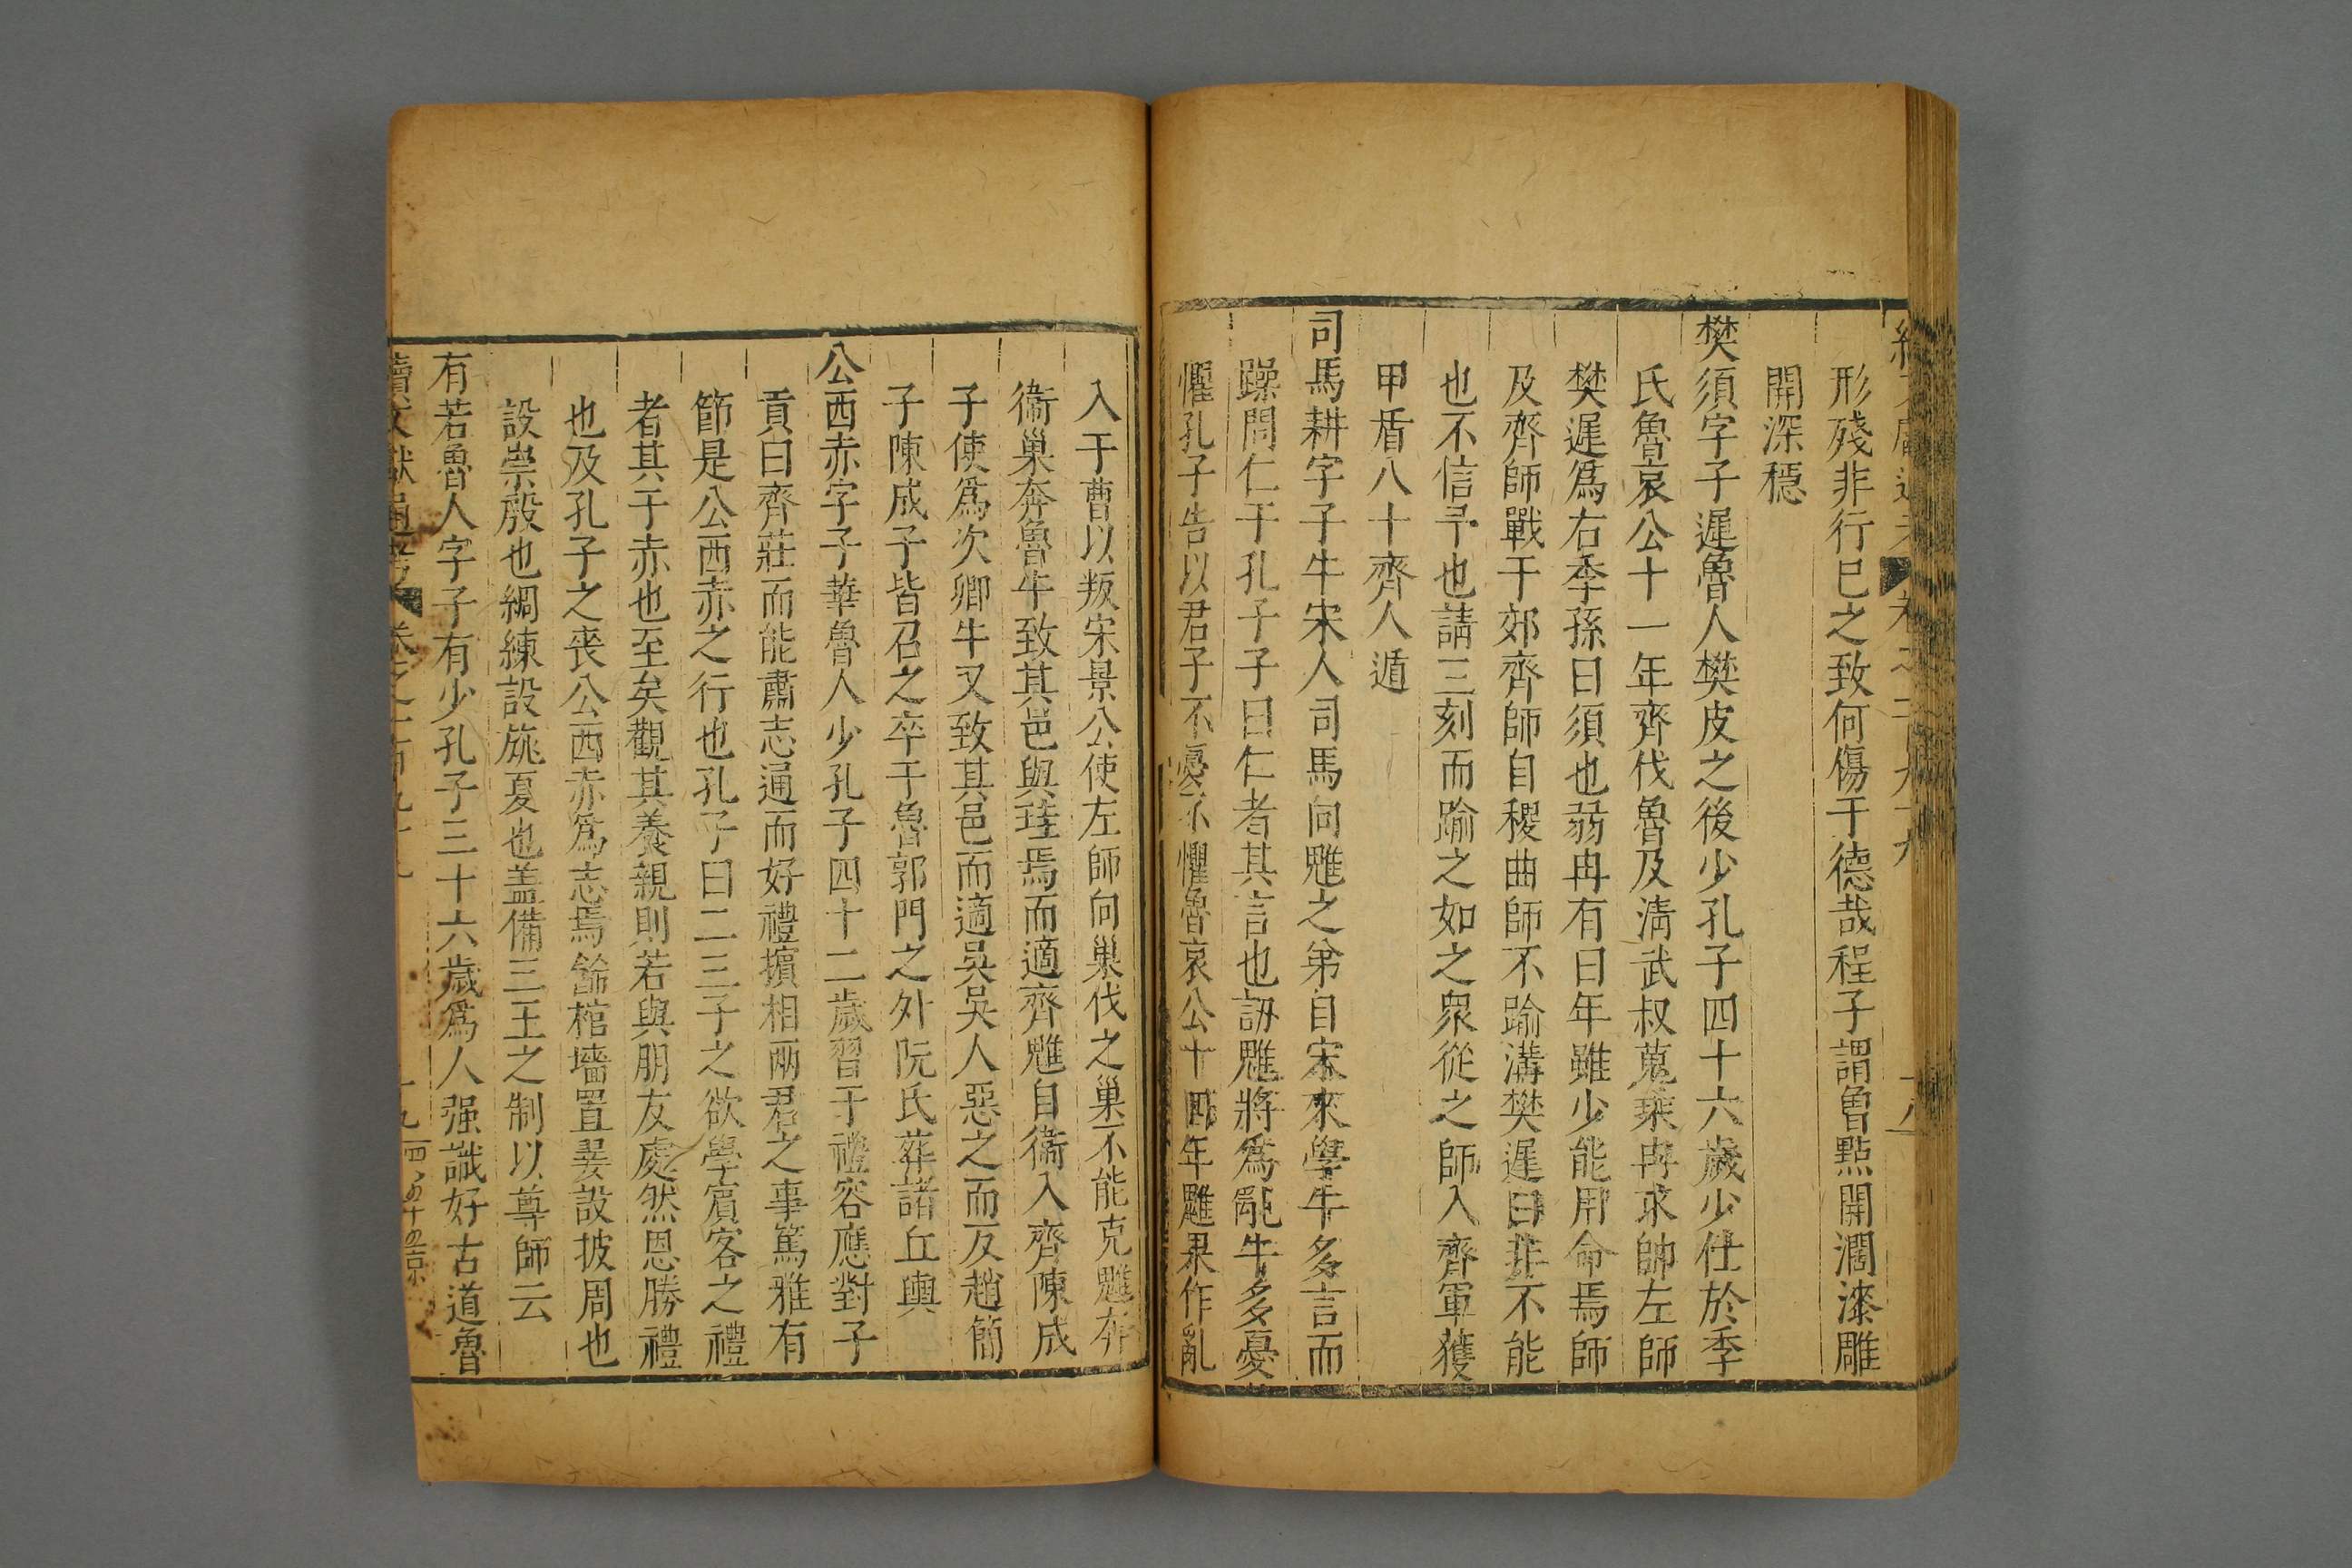 形殘非行已之致何傷于德哉程子謂魯點開濶漆雕
開深穩
樊須字子遲魯人樊皮之後少孔子四十六歲少仕於季
氏魯哀公十一年齊伐魯及淸武叔蒐乘冉求帥左師
樊遲爲右季孫曰須也弱冉有曰年雖少能用命焉師
及齊師戰于郊齊師自稷曲師不踰溝樊遲曰非不能
也不信子也請三刻而踰之如之衆從之師入齊軍獲
甲盾八十齊人遁
司馬耕字子牛宋人司馬向魋之弟自宋來學牛多言而
躁問仁于孔子子曰仁者其言也訒魋將爲亂牛多憂
懼孔子告以君子不憂不懼魯哀公十四年魋果作亂
入于曹以叛宋景公使左師向巢伐之巢不能克魋奔
衞巢奔魯牛致其邑與珪焉而適齊魋自衞入齊陳成
子使爲次卿牛又致其邑而適吳吳人惡之而反趙簡
子陳成子皆召之卒于魯郭門之外阮氏葬諸丘輿
公西赤字子華魯人少孔子四十二歲習于禮容應對子
貢曰齊莊而能肅志通而好禮擯相兩君之事篤雅有
節是公西赤之行也孔子曰二三子之欲學賓客之禮
者其于赤也至矣觀其養親則若與朋友處然恩勝禮
也及孔子之喪公西赤爲志焉餙棺墻置翣設披周也
設崇殷也綢練設旐夏也盖備三王之制以尊師云
有若魯人字子有少孔子三十六歲爲人强識好古道魯
續文獻通考 卷之二百九十九 十九